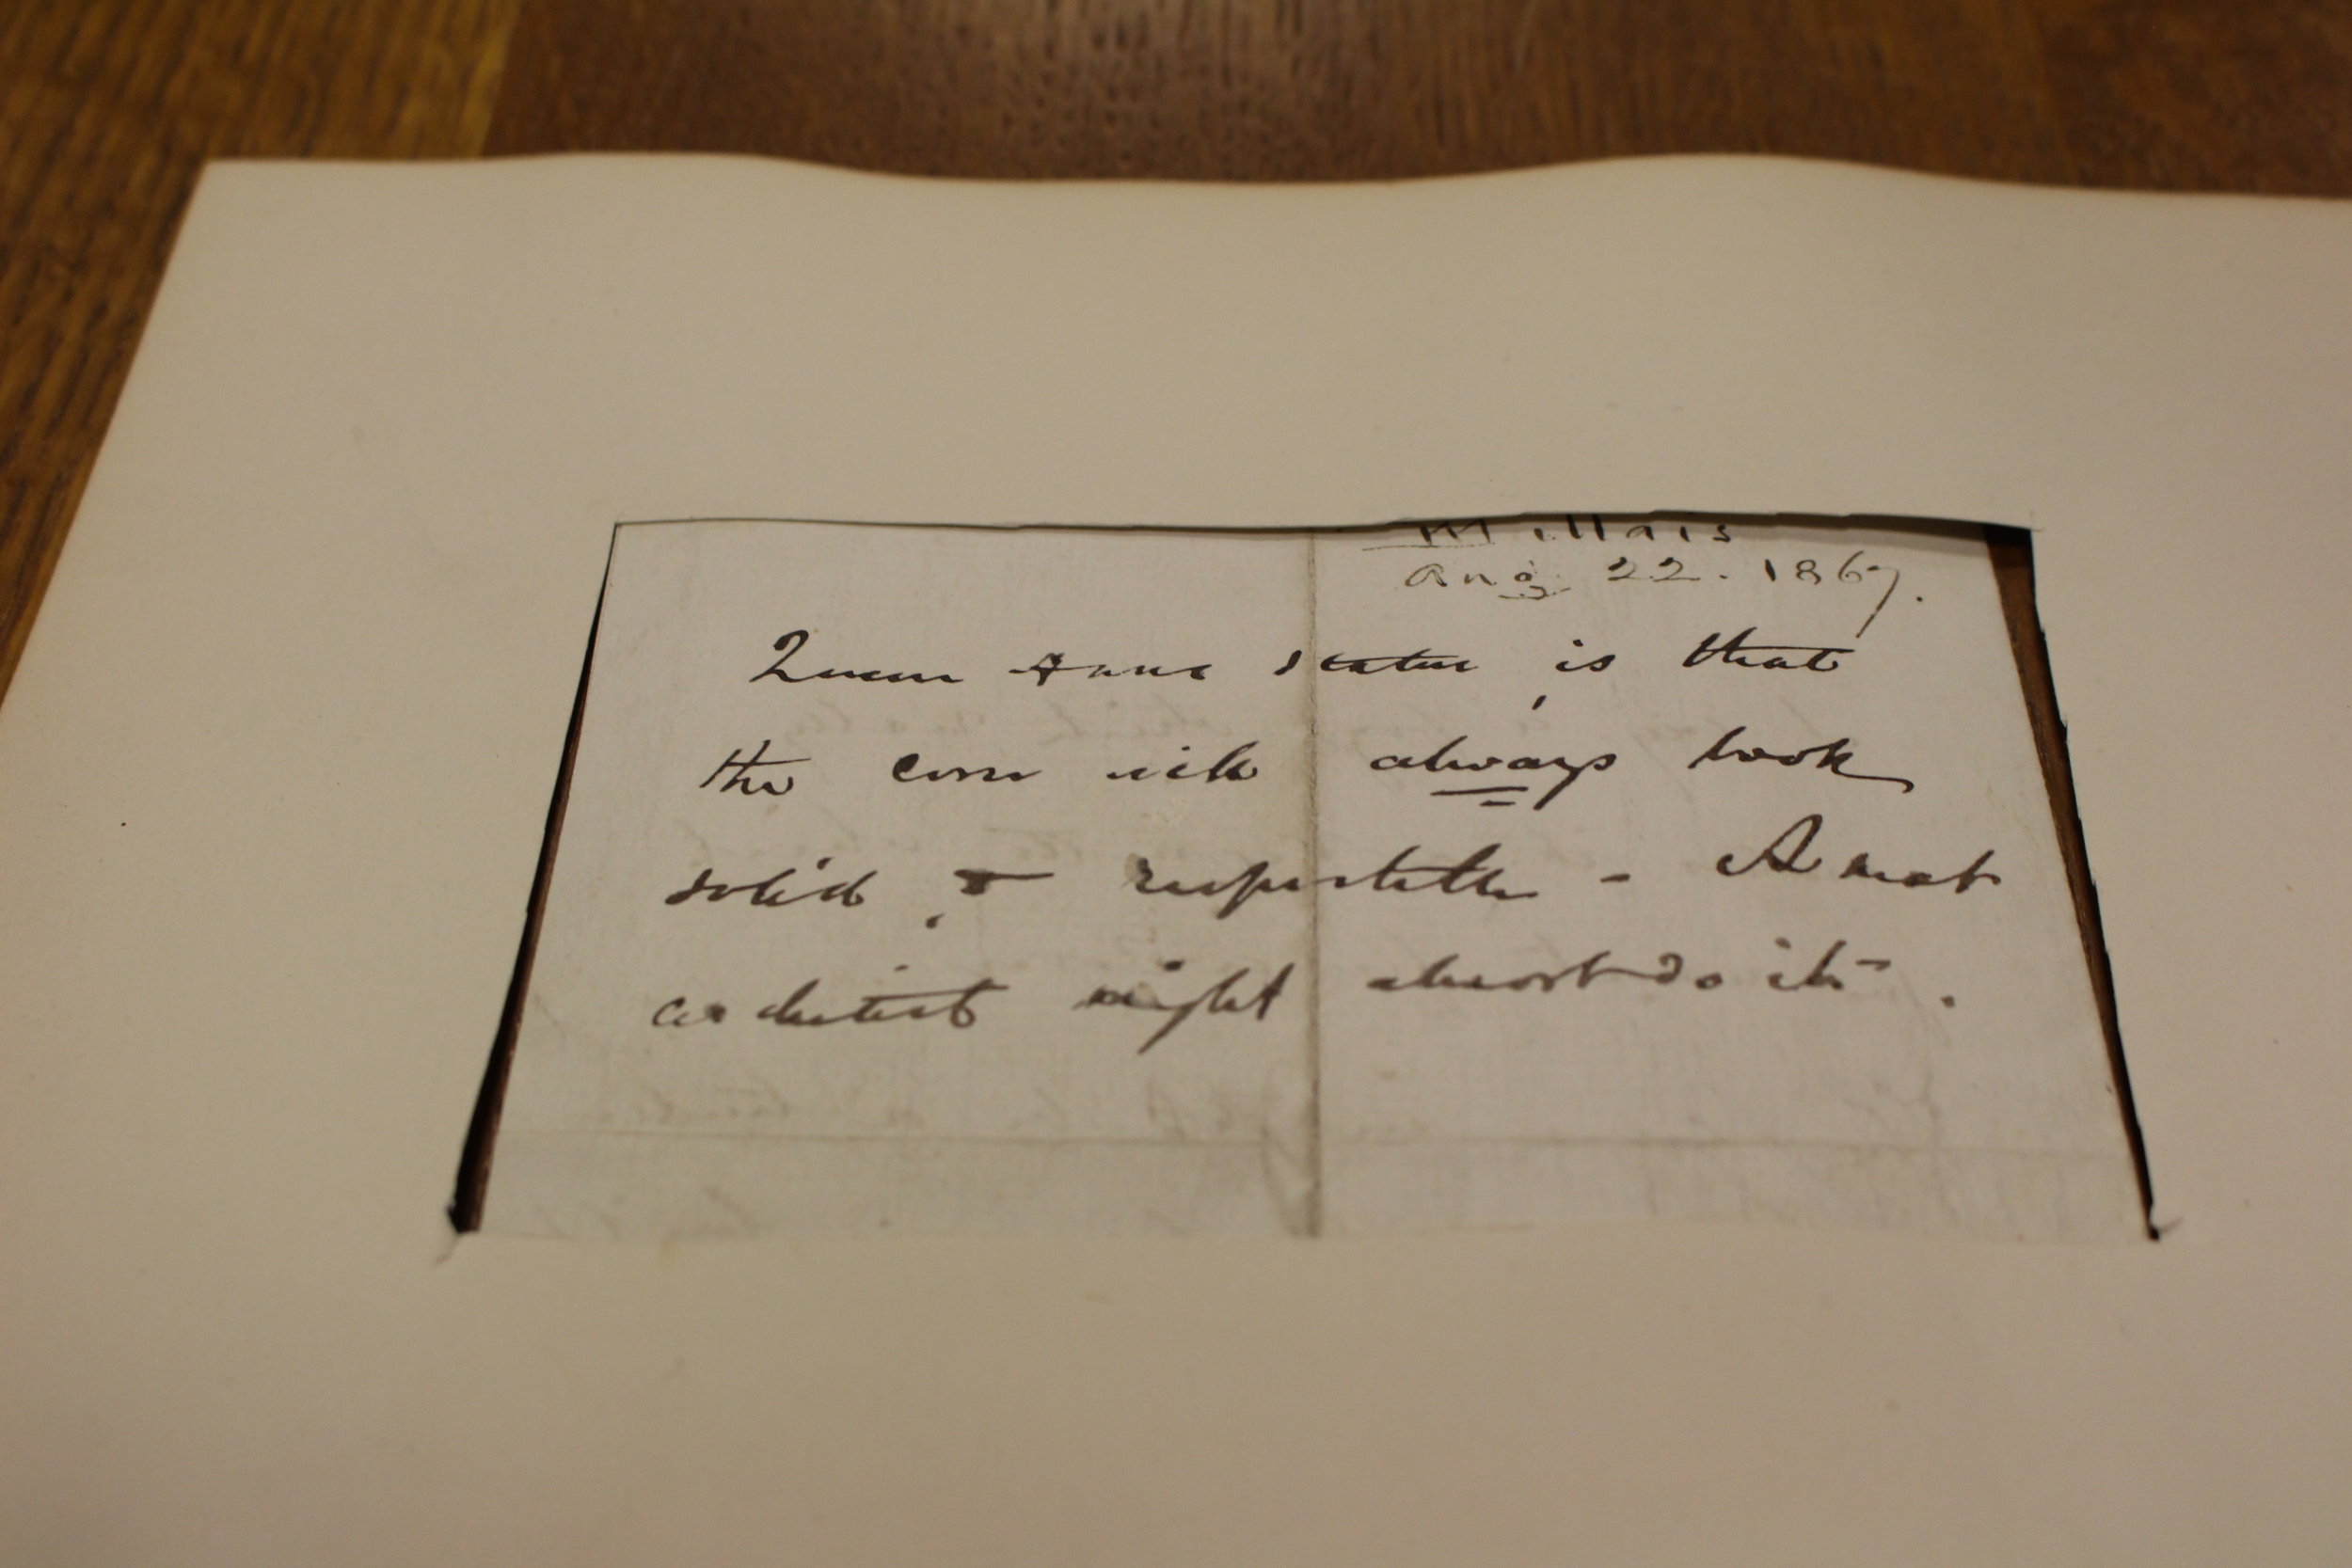 Millais
Aug 22. 1867.
Queen Anne Statue is that
the will always look
solid & respectable - A neat
architect might almost do it.